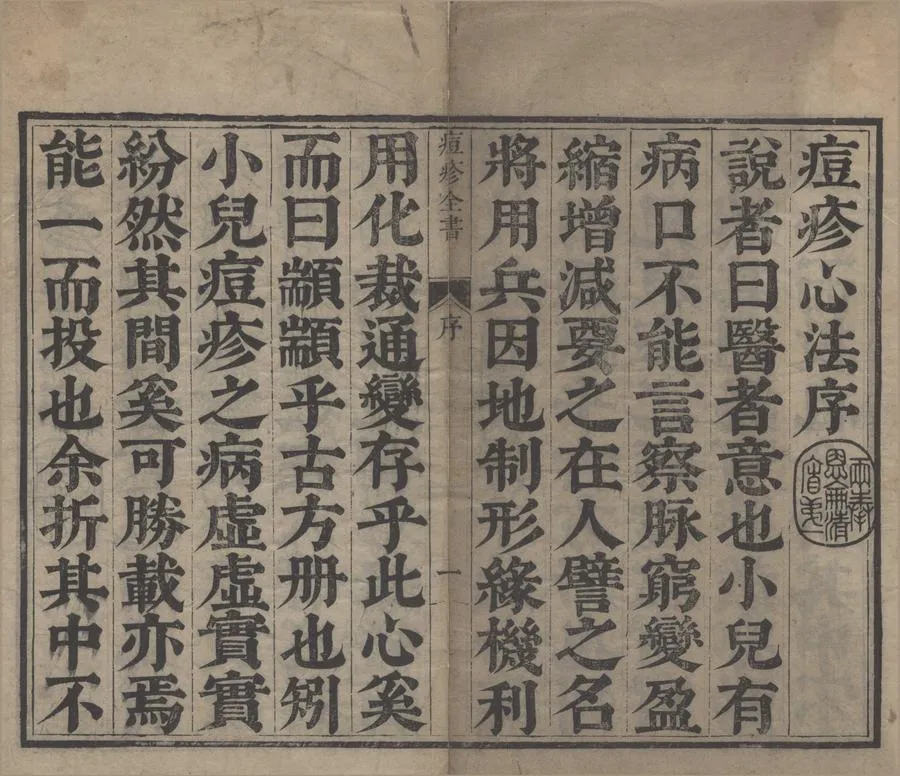 痘疹心法序
說者曰醫者意也小兒有
病口不能言察脉窮變盈
縮增減要之在人譬之名
將用兵因地制形緣機利
痘疹全書
序
一
用化裁通變存乎此心奚
而曰顓顓乎古方册也矧
小兒痘疹之病虛虛實實
紛然其間奚可勝載亦焉
能一而投也余折其中不